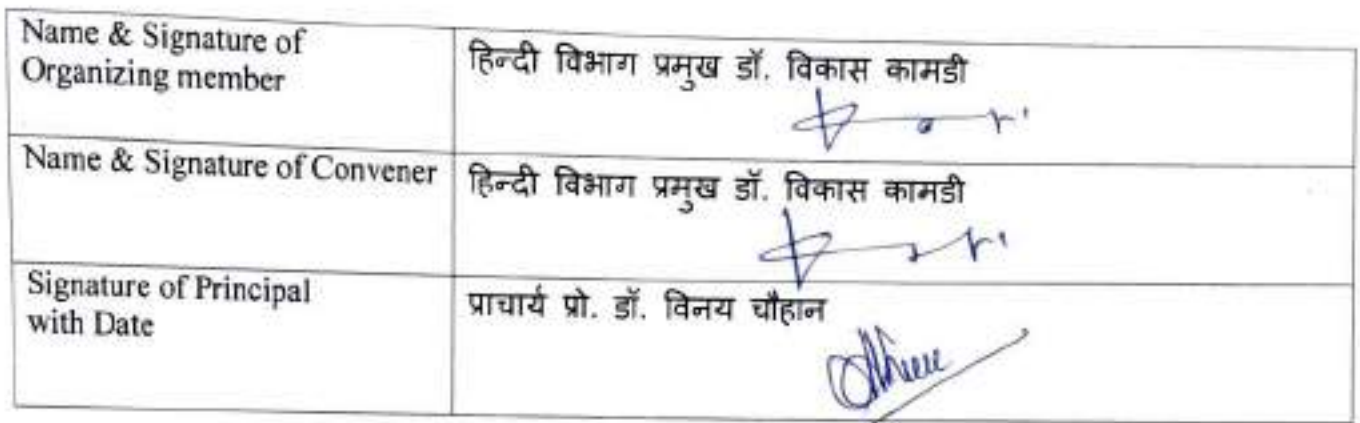 Name & Signature of
Organizing member
हिन्दी विभाग प्रमुख डॉ. विकास कामडी
Name & Signature of Convener
हिन्दी विभाग प्रमुख डॉ. विकास कामडी
Signature of Principal
with Date
प्राचार्य प्रो. डॉ. विनय चौहान